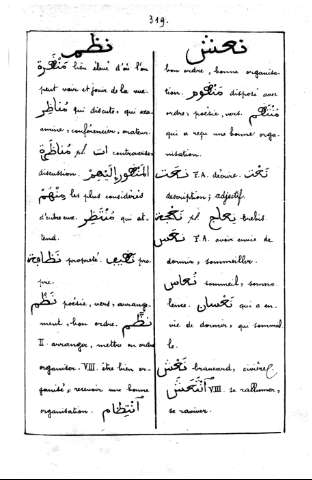 319.
نظم
نعش
مَنْظَرَة lieu élevé d'où l'on
peut voir et jouir de la vue.
مُناظِر qui discute, qui exa-
mine, conférencier, orateur.
مُناظَرة pl ات controverse,
discussion. المَنْظور إليهم
مِنْهُم les plus considérés
d'entre eux. مُنْتَظِر qui at-
tend.
نَظافة propreté. نظيف pro-
pre.
نَظْم poésie, vers, arrange-
ment, bon ordre. نظّم
II arranger, mettre en ordre
organiser. VIII. être bien or-
ganisé, recevoir une bonne
organisation. اِنتِظام
bon ordre, bonne organisa-
tion. مَنظوم disposé avec
ordre, poésie, vers. مُنْتَظِم
qui a reçu une bonne orga-
nisation.
نَعَت F.A. décrire. نَعْت
description; adjectif.
نَعْجة pl نِعاج brebis.
نَعَس F.A. avoir envie de
dormir, sommeiller.
نُعاس sommeil, somno-
lence. نَعْسان qui a en-
vie de dormir, qui sommeil-
le.
نَعْش brancard, civière
اِنْتَعَش VIII. se rallumer,
se raviver.